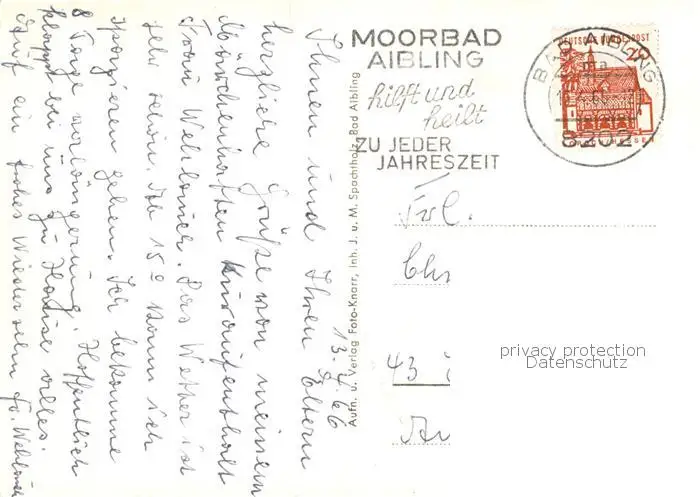 13.4.66
Ihnen und Ihren Eltern
herzliche Grüße von meinem
Märchenhaften Kuraufenthalt
Frau Wehlauer. Das Wetter ist
sehr schön. Ab 15° kann ich
spazieren gehen. Ich bekomme
8 Tage verlängerung. Hoffentlich
klappt bei uns zu Hause alles.
Auf ein frohes Wiedersehn Fr.
Aufn. u. Verlag Foto-Knarr, Inh. J. u. M. Spachtholz, Bad Aibling
MOORBAD
AIBLING
hilft und
heilt
ZU JEDER
JAHRESZEIT
DEUTSCHE BUNDESPOST
20
BAD AIBLING
8202
Frl.
Chr
43
privacy protection
Datenschutz